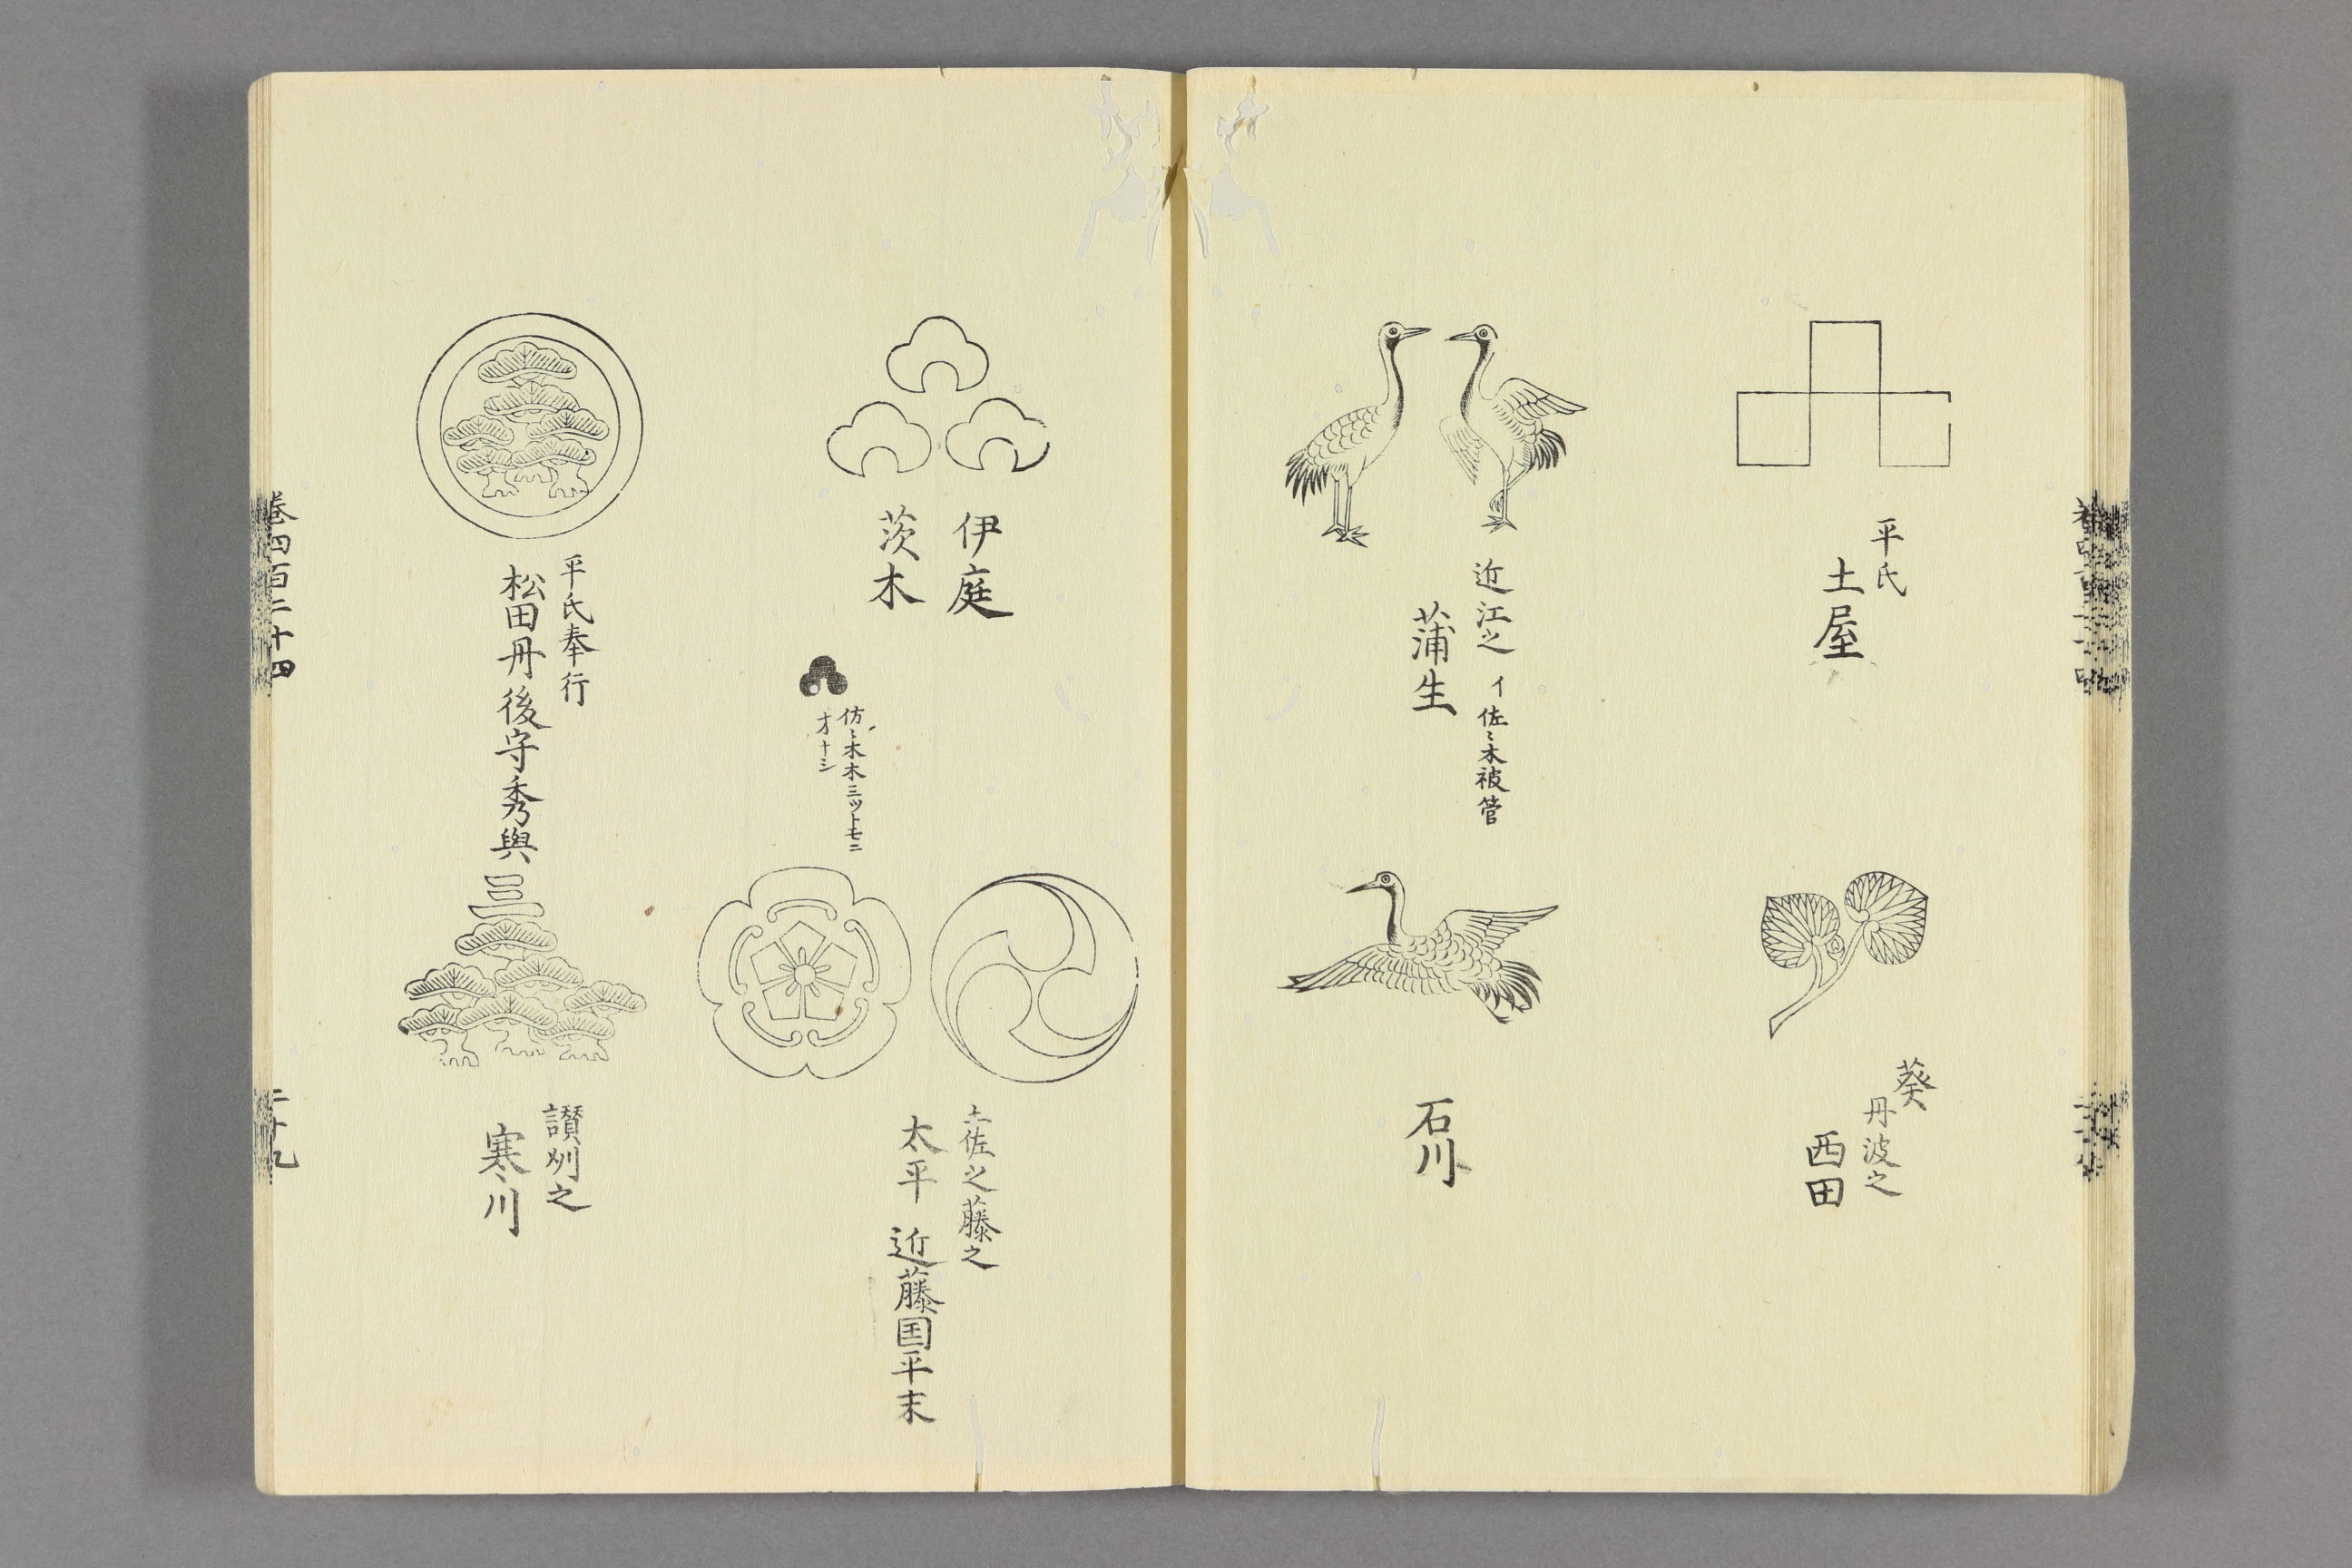 平氏
土屋
葵
丹波之
西田
近江之 イ佐〻木被管
蒲生
石川
伊庭
茨木
木三ツトモニ
オナシ
土佐之藤之
太平 近藤国平末
平氏奉行
松田丹後守秀與
讃州之
寒川
巻四百二十四
二十九